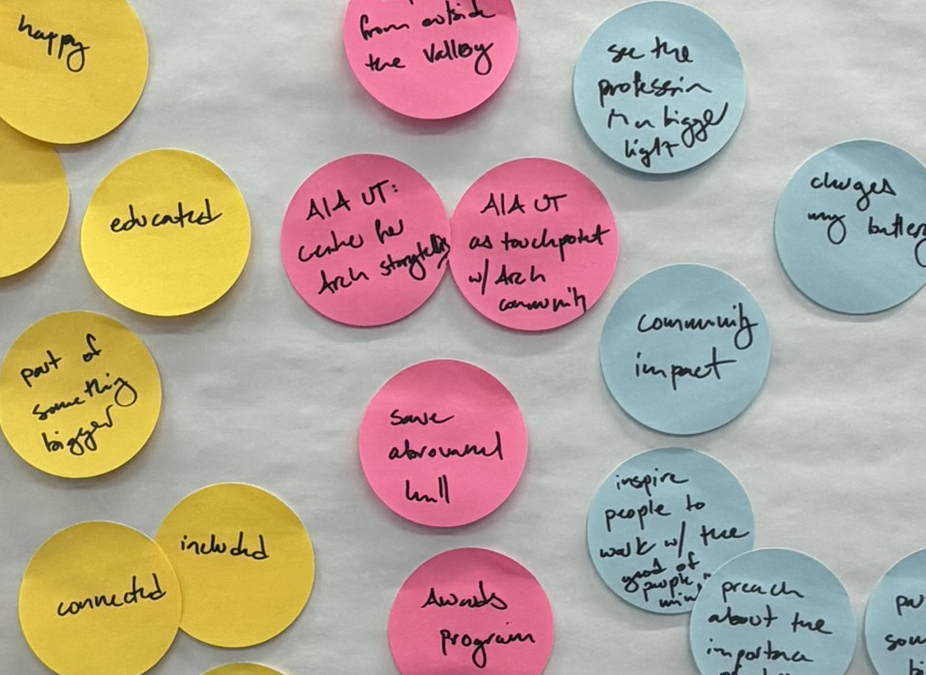 happy
educated
part of
something
bigger
connected
included
from outside
the valley
AIA UT:
center for
Arch storytelling
AIA UT
as touchpoint
w/ Arch
community
save
abravanel
hall
Awards
program
see the
profession
in a bigger
light
charges
my battery
community
impact
inspire
people to
work w/ the
good of
people in
mind
preach
about the
importance